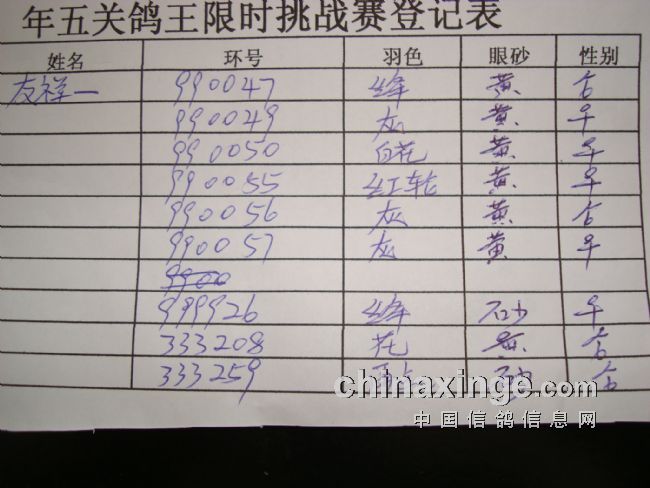 年五关鸽王限时挑战赛登记表
姓名 环号 羽色 眼砂 性别
友祥一 990047 绛 黄 合
990049 灰 黄 早
990050 白花 黄 早
990055 红轮 黄 早
990056 灰 黄 合
990057 灰 黄 早
9900
999926 绛 砂 早
333208 花 黄 合
333259 砂 合
chinaxinge.com
中国信鸽信息网